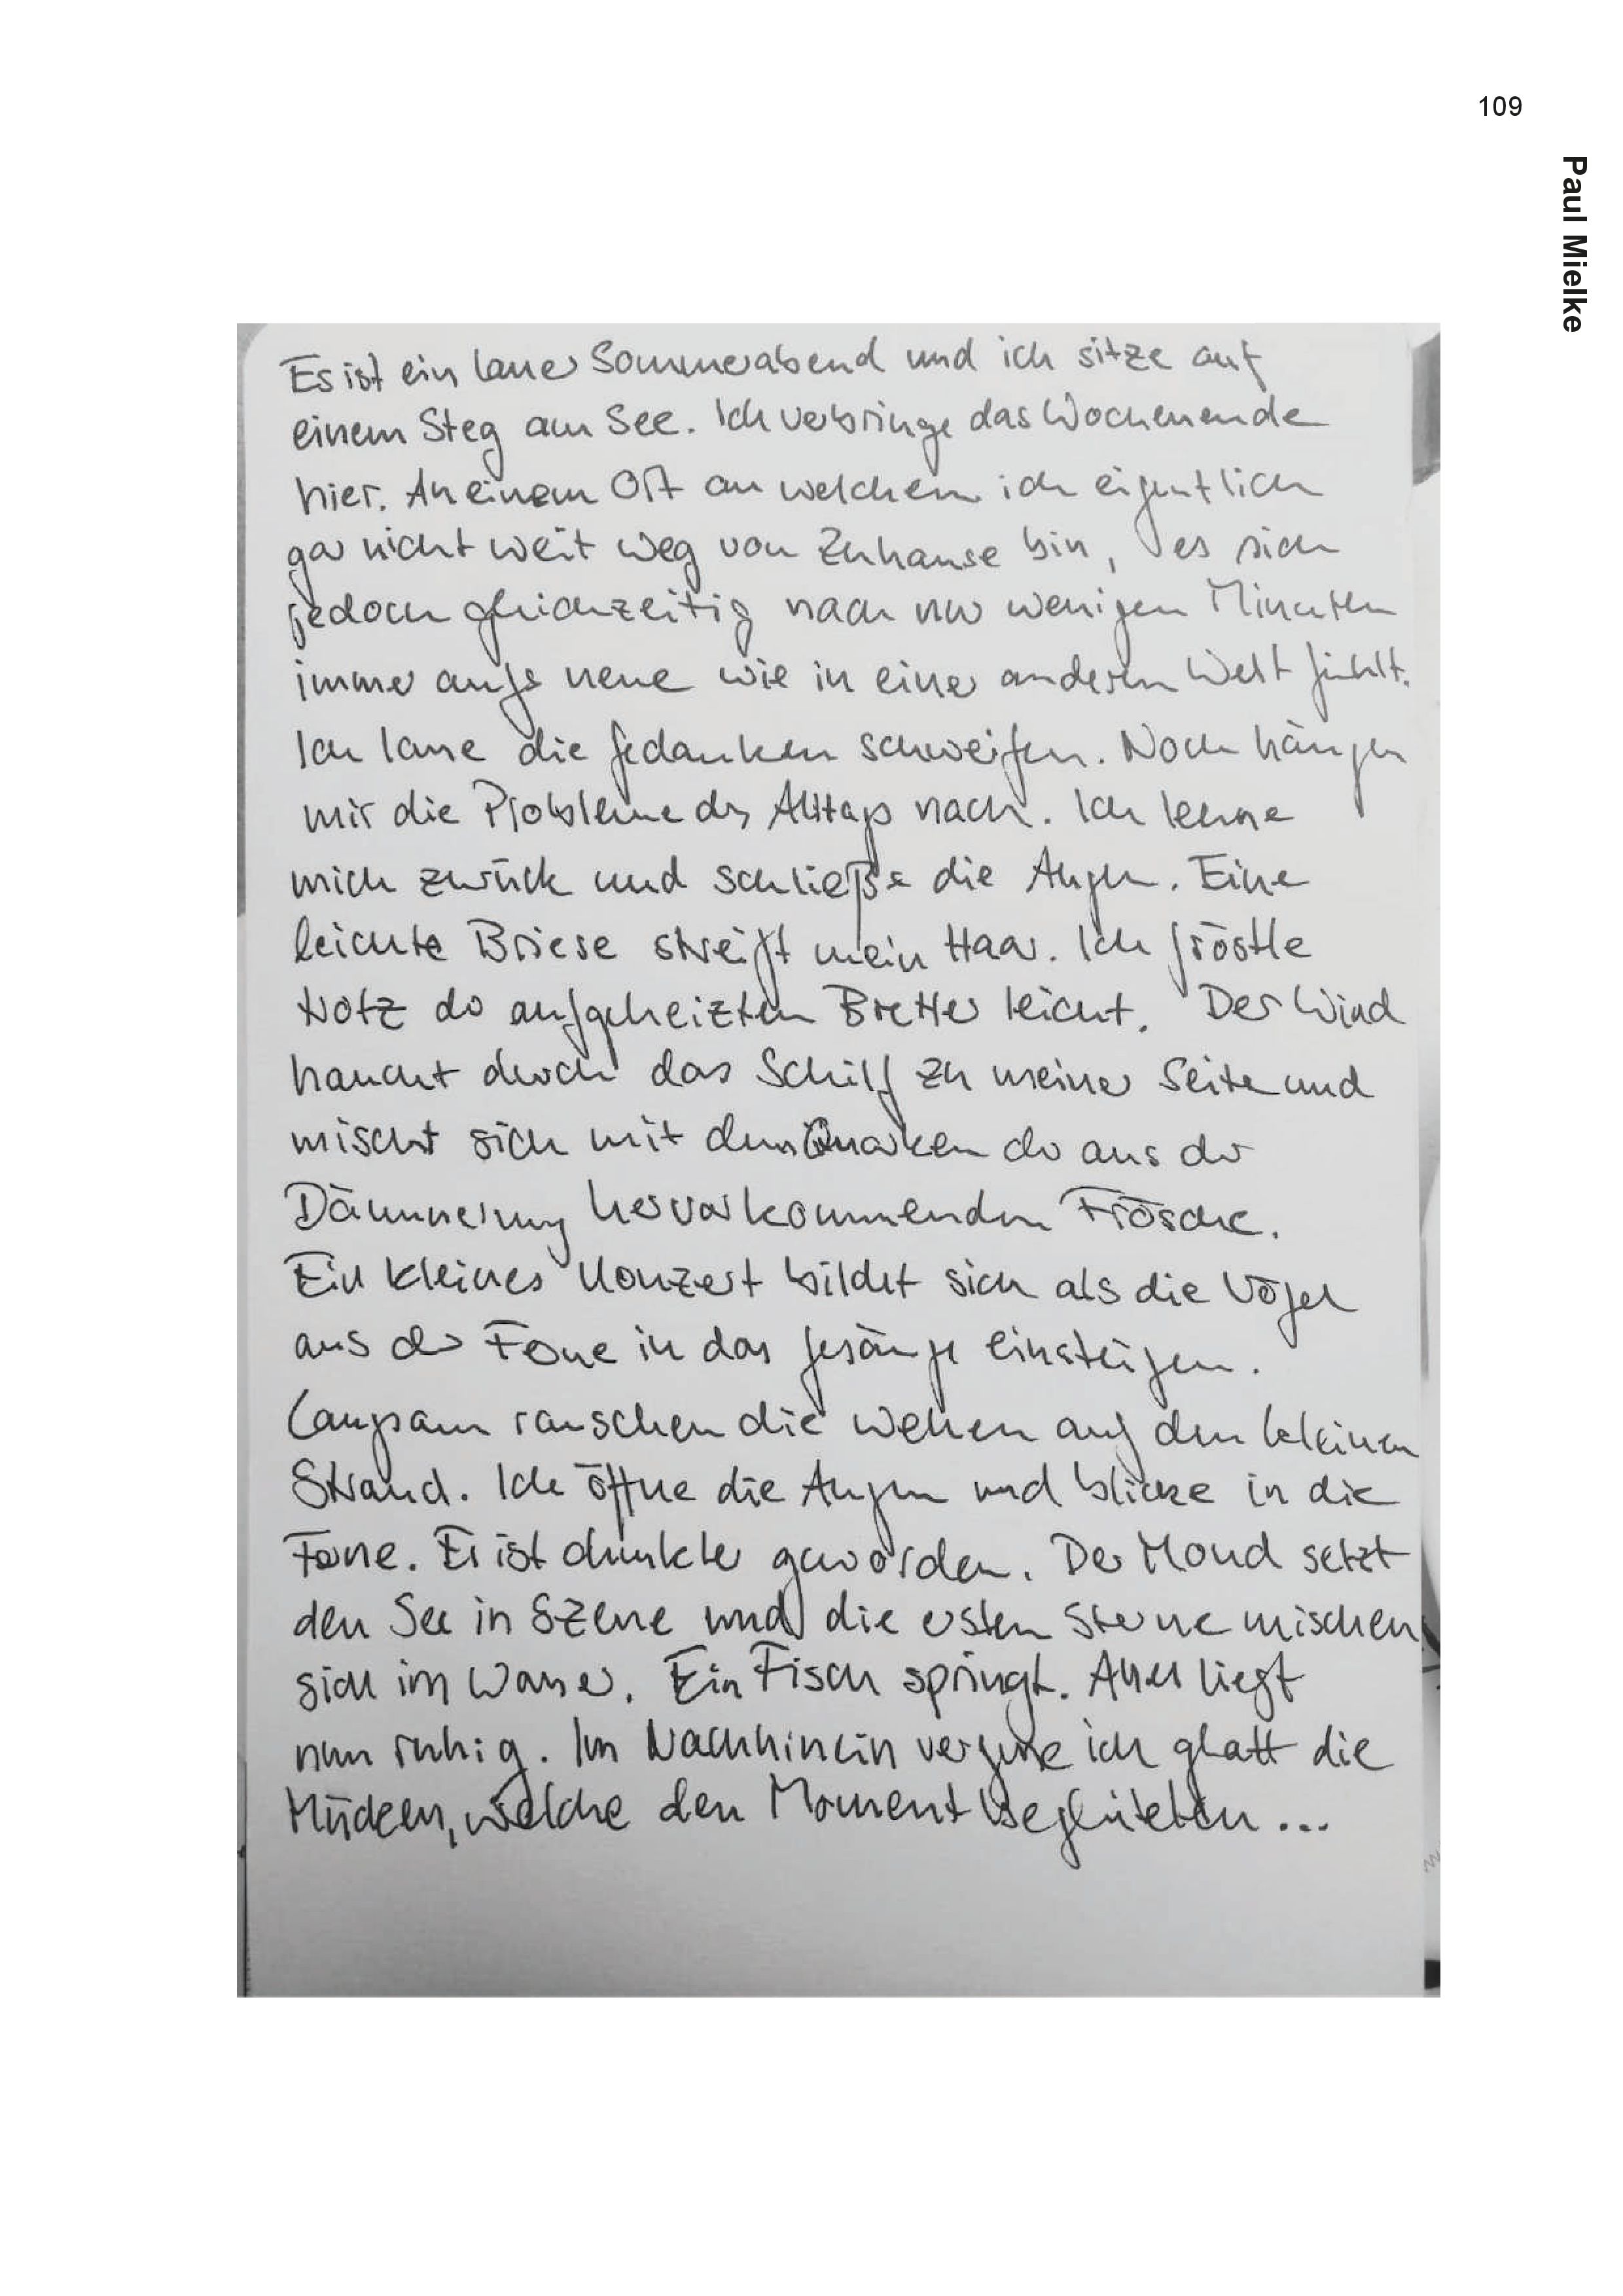 109
Paul Mielke
Es ist ein lauer Sommerabend und ich sitze auf
einem Steg am See. Ich verbringe das Wochenende
hier. An einem Ort an welchem ich eigentlich
gar nicht weit weg von Zuhause bin, es sich
jedoch gleichzeitig nach nur wenigen Minuten
immer aufs neue wie in einer anderen Welt fühlt.
Ich lasse die Gedanken schweifen. Noch hängen
mir die Probleme des Alltags nach. Ich lehne
mich zurück und schließe die Augen. Eine
leichte Briese streift mein Haar. Ich fröstle
trotz der aufgeheizten Bretter leicht. Der Wind
haucht durch das Schilf zu meiner Seite und
mischt sich mit dem Quaken der aus der
Dämmerung hervorkommenden Frösche.
Ein kleines Konzert bildet sich als die Vögel
aus der Ferne in das Gesänge einsteigen.
Langsam rauschen die Wellen auf den kleinen
Strand. Ich öffne die Augen und blicke in die
Ferne. Es ist dunkler geworden. Der Mond setzt
den See in Szene und die ersten Sterne mischen
sich im Wasser. Ein Fisch springt. Alles liegt
nun ruhig. Im Nachhinein vergesse ich glatt die
Mücken, welche den Moment begleiteten...